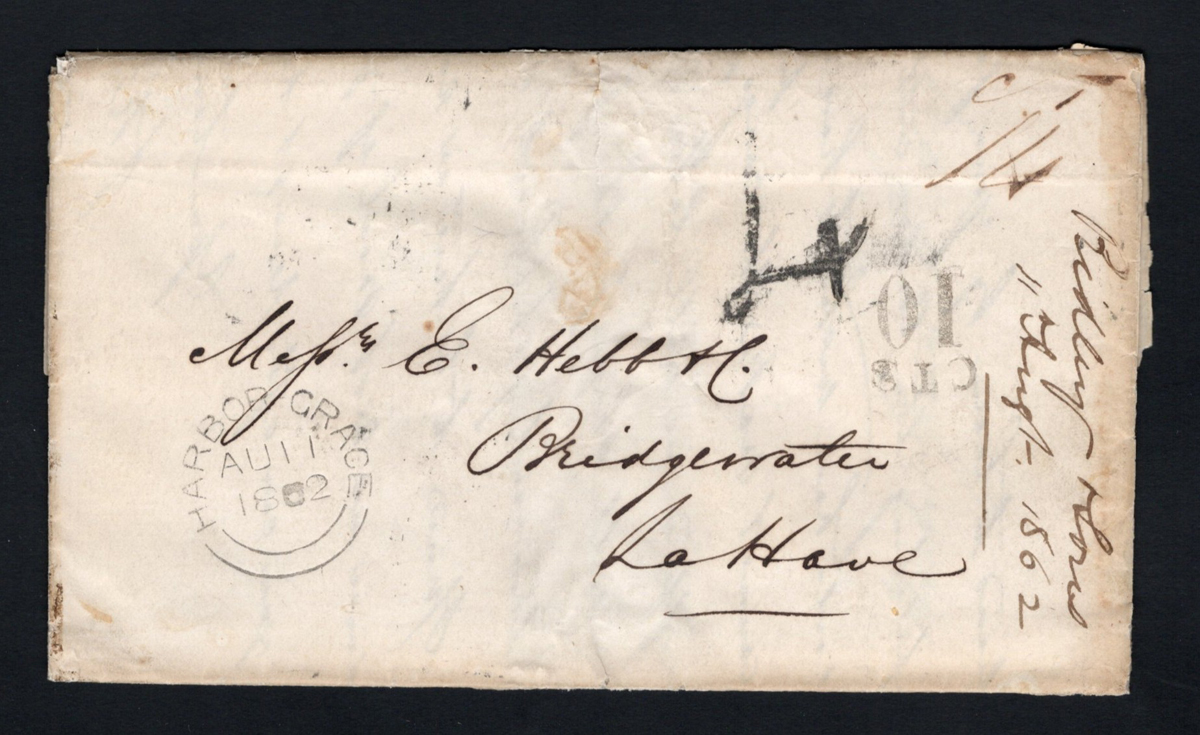 4
10
CTS
Messrs E. Hebb & Co.
Bridgewater
La Have
HARBOR GRACE
AU 11
1862
Ridley & Sons
11 Augt. 1862